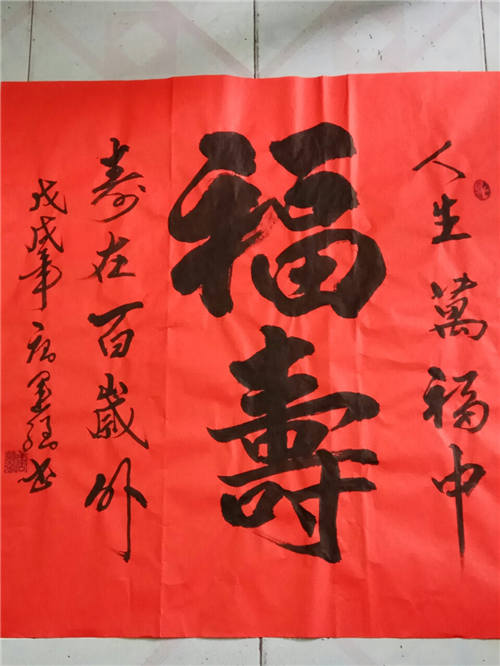 人生萬福中
福壽
寿在百歲外
戊戌年
书